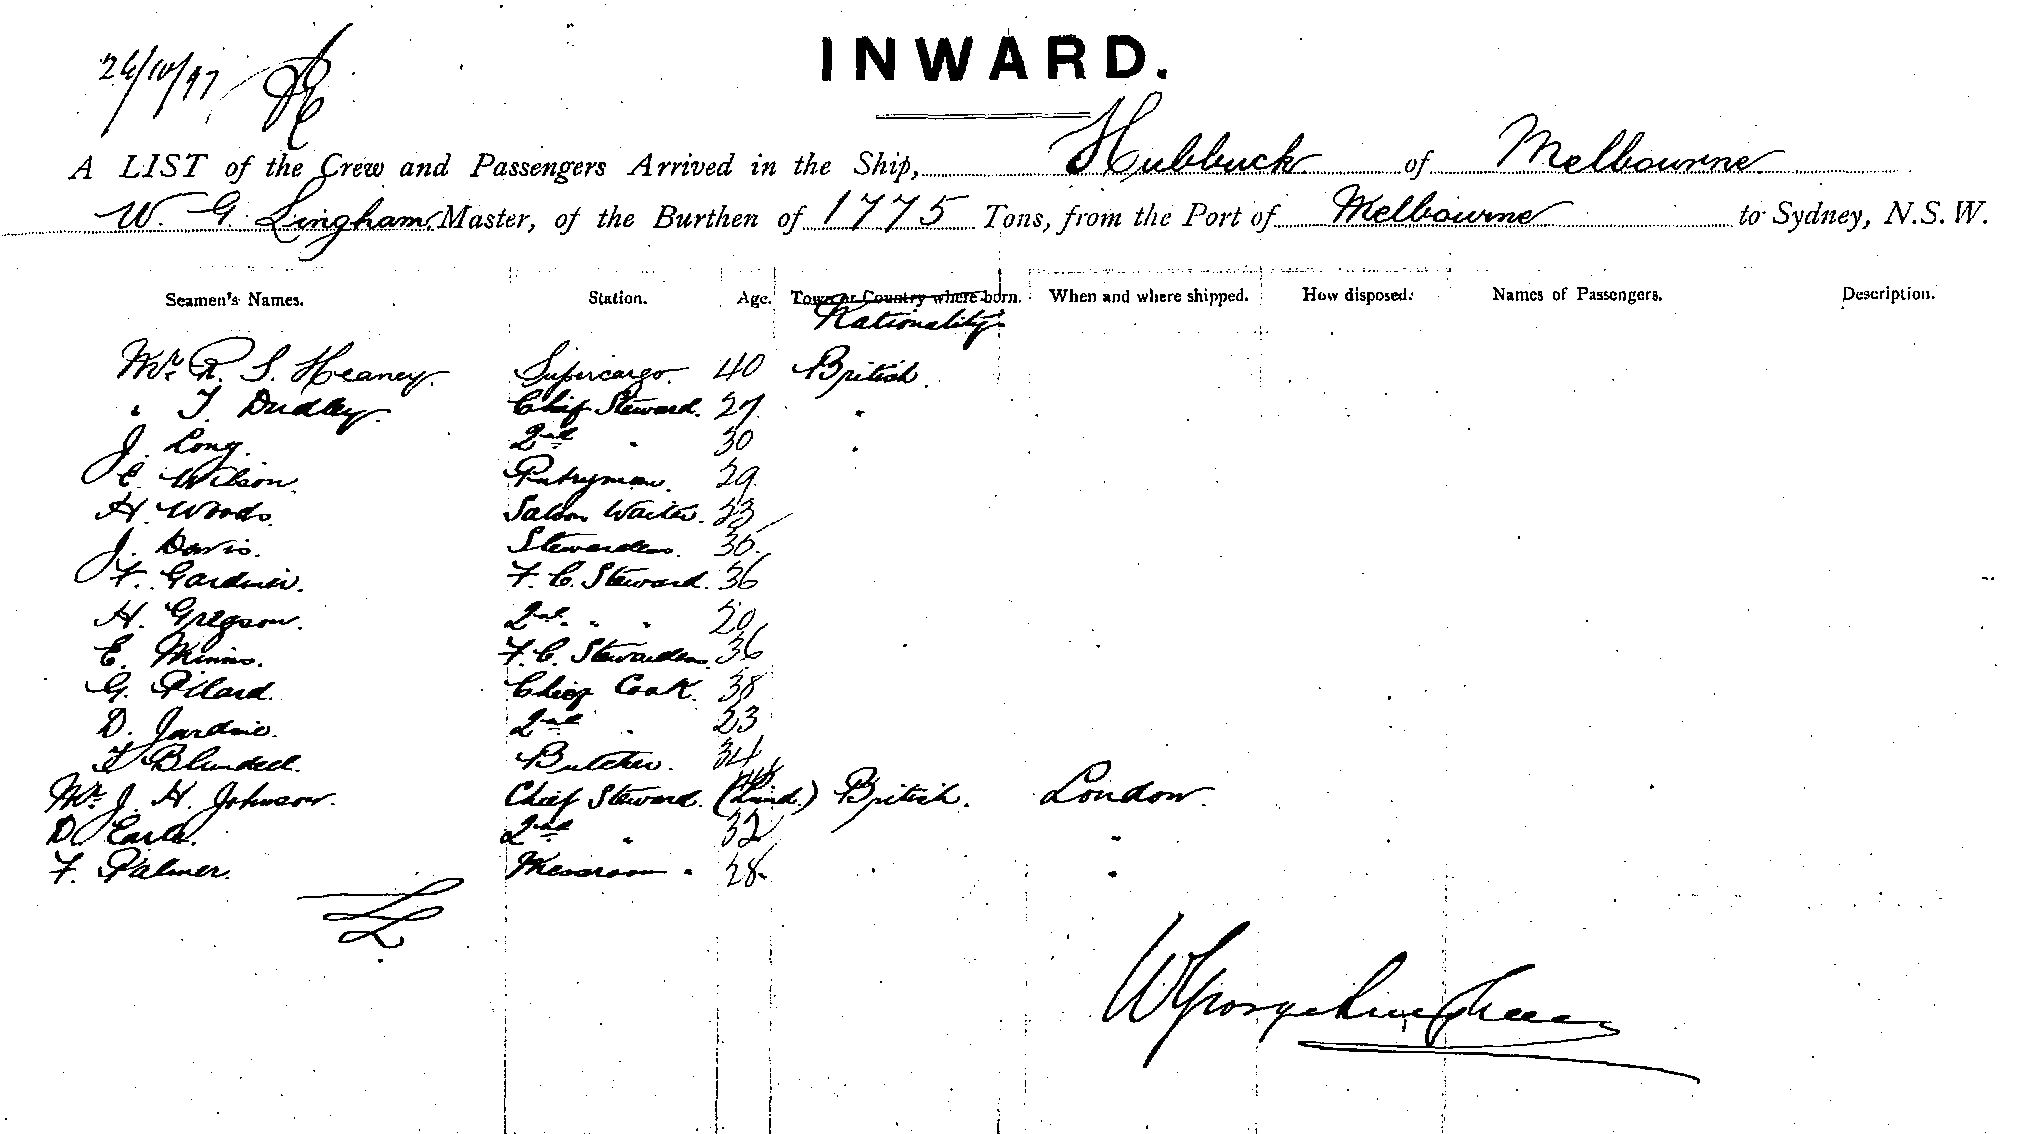 26/10/97
INWARD.
A LIST of the Crew and Passengers Arrived in the Ship, Hubbuck of Melbourne
W. G. Lingham, Master, of the Burthen of 1775 Tons, from the Port of Melbourne to Sydney, N.S.W.
Seamen's Names. Station. Age. Town or Country where born. When and where shipped. How disposed: Names of Passengers. Description.
Nationality
Mr. R. S. Heaney. Supercargo. 40 British.
" T. Dudley. Chief Steward. 27 "
J. Long. 2nd " 30 "
C. Wilson. Pntryman. 29
H. Woods. Saloon Waiter. 23
J. Davis. Stewardess. 30.
F. Gardner. F. C. Steward. 36
H. Gregson. 2nd " " 20
E. Minns. F. C. Stewardess. 36
G. Pilard. Chief Cook. 38
D. Jardine. 2nd " 23
T. Blundell. Butcher. 34
Mr. J. H. Johnson. Chief Steward. British. London.
D. Earle. 2nd " 32 "
F. Palmer. Messroom " 28 " "
W George Lingham